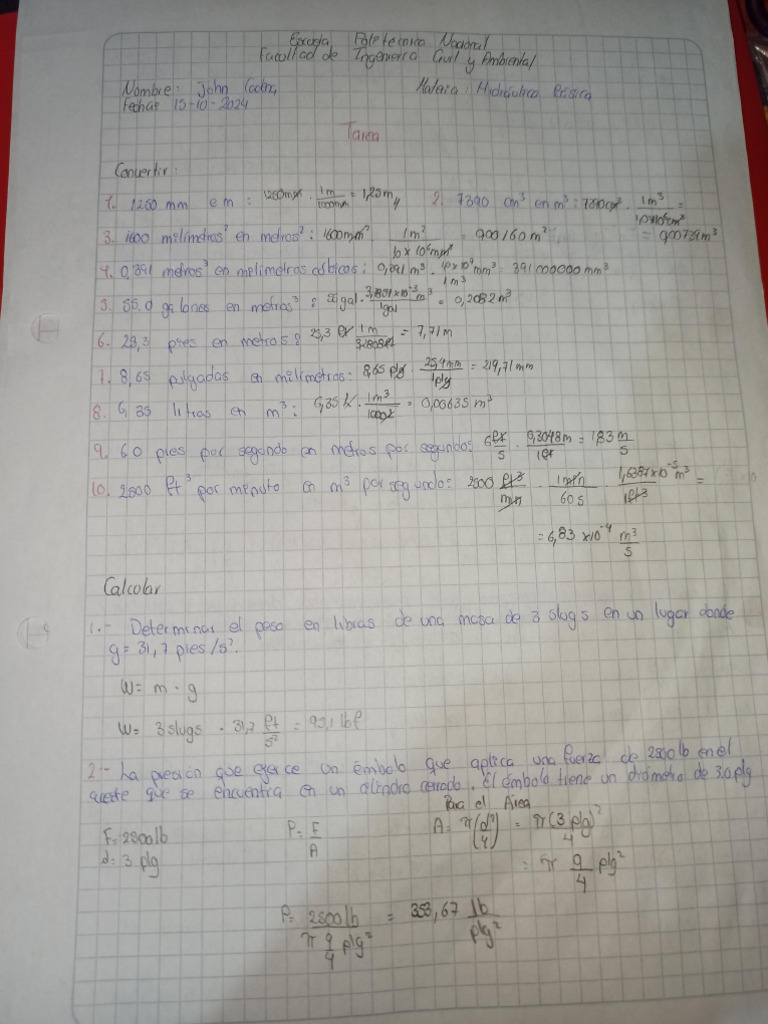 Escuela Politecnica Nacional
Facultad de Ingenieria Civil y Ambiental
Nombre: John Materia: Hidráulica Básica
Fecha: 15-10-2024
Tarea
Convertir:
1. 1250 mm e m : 1250mm · 1m/1000mm = 1,25 m 2. 7390 cm³ en m³: 7390cm³ · 1m³/10×10⁶cm³ =
3. 1600 milimetros² en metros²: 1600mm² 1m²/10×10⁶mm² = 0,00160m² = 0,00739m³
4. 0,391 metros³ en melimetros cúbicos: 0,391m³ · 10×10⁹mm³/1m³ = 391000000 mm³
5. 55.0 galones en metros³ : 55gal · 3,7854×10⁻³m³/1gal = 0,2082m³
6. 25,3 pies en metros: 25,3 ft 1m/3,2808ft = 7,71m
7. 8,65 pulgadas en milimetros: 8,65 plg · 25,4mm/1plg = 219,71mm
8. 6,35 litros en m³: 6,35 L · 1m³/1000L = 0,00635 m³
9. 6.0 pies por segundo en metros por segundo: 6ft/s · 0,3048m/1ft = 1,83 m/s
10. 2500 ft³ por minuto en m³ por segundo: 2500 ft³/min · 1min/60s · 1,6387×10⁻⁵m³/1ft³ =
= 6,83 ×10⁻⁴ m³/s
Calcolar
1.- Determinar el peso en libras de una masa de 3 slugs en un lugar donde
g= 31,7 pies/s².
W= m · g
W= 3 slugs · 31,7 ft/s² = 95,1 lbf
2.- La presión que ejerce un émbolo que aplica una fuerza de 2500 lb en el
aceite que se encuentra en un cilindro cerrado. El émbolo tiene un diámetro de 3.0 plg
Para el Área
F= 2500lb P= F/A A= π(d²/4) = π(3 plg)²/4
d= 3 plg = π 9/4 plg²
P= 2500lb/π 9/4 plg² = 353,67 lb/plg²